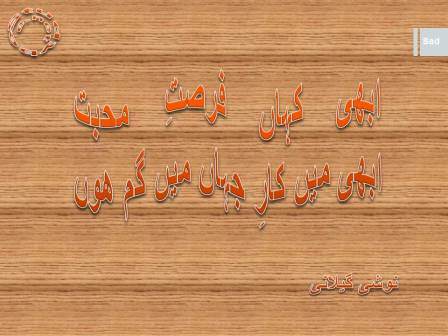 Sad
ابھی کہاں فرصتِ محبت
ابھی میں کارِ جہاں میں گم ھوں
نوشی گیلانی